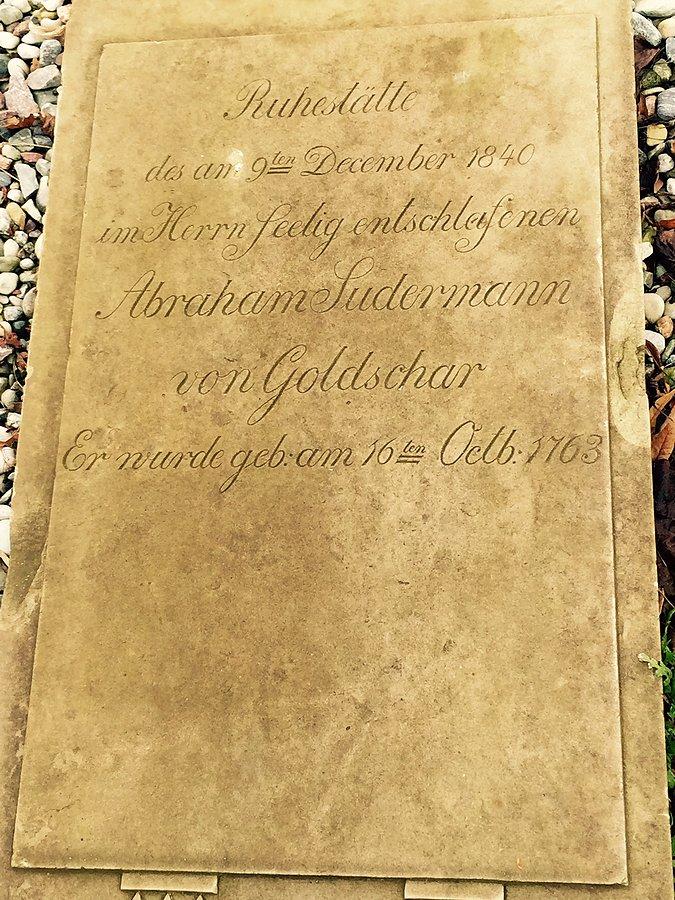 Ruhestätte
des am 9ten December 1840
im Herrn seelig entschlafenen
Abraham Sudermann
von Goldschar
Er wurde geb: am 16ten Octb: 1763